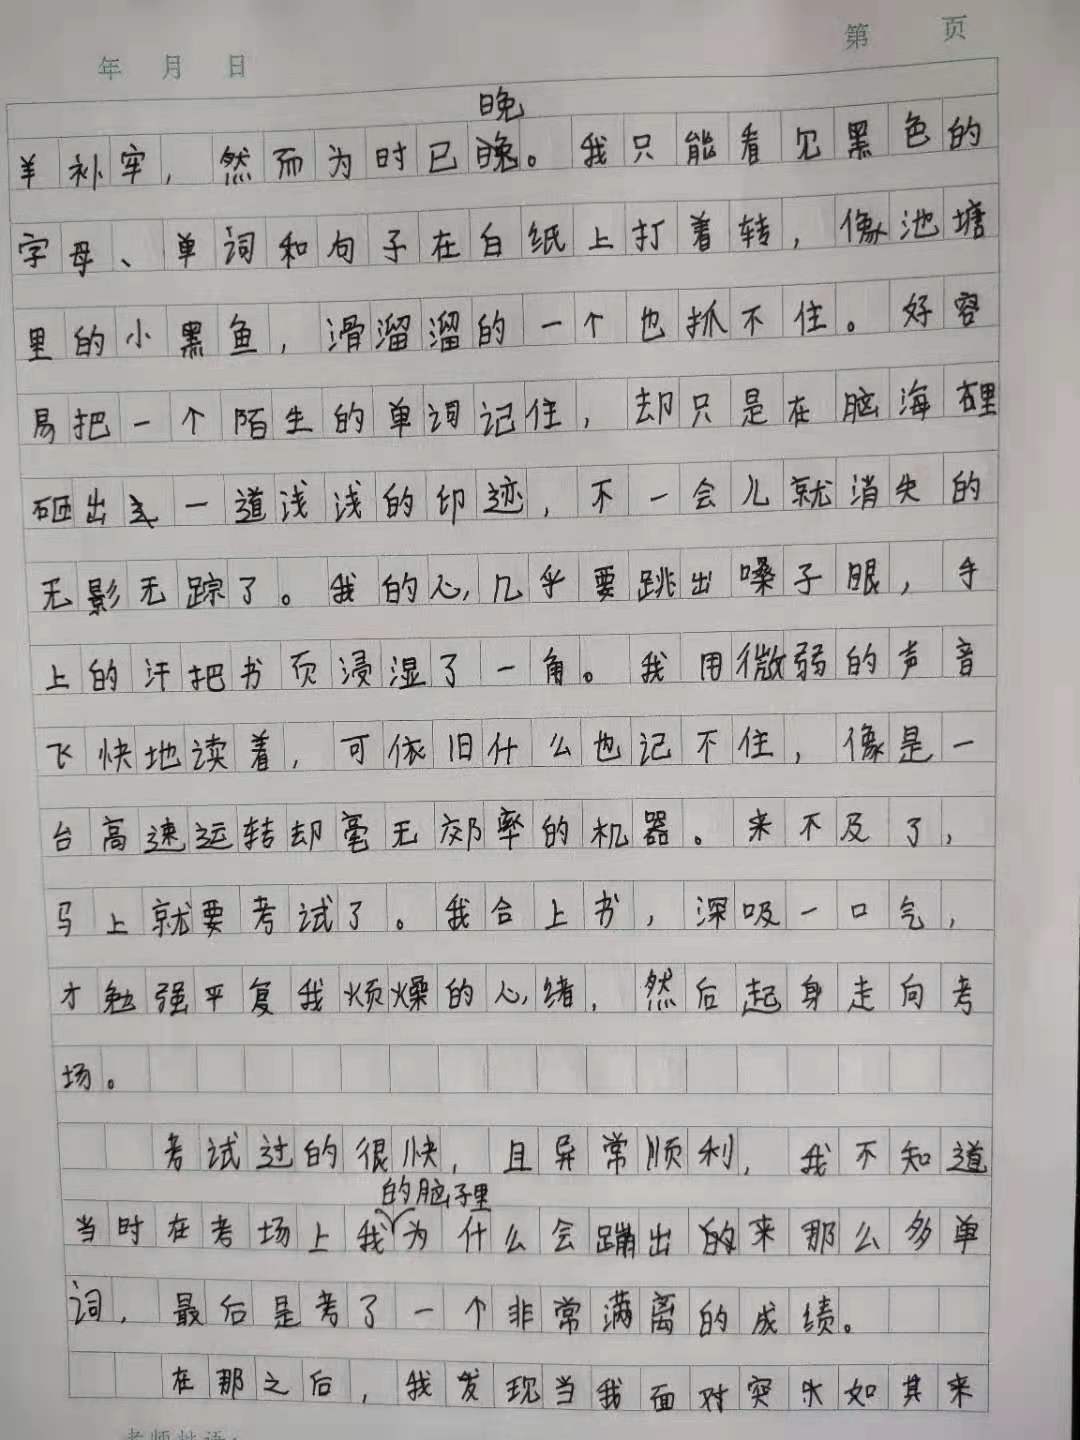 年 月 日 第 页
晚
羊补牢，然而为时已晚。我只能看见黑色的
字母、单词和句子在白纸上打着转，像池塘
里的小黑鱼，滑溜溜的一个也抓不住。好容
易把一个陌生的单词记住，却只是在脑海里
砸出一道浅浅的印迹，不一会儿就消失的
无影无踪了。我的心几乎要跳出嗓子眼，手
上的汗把书页浸湿了一角。我用微弱的声音
飞快地读着，可依旧什么也记不住，像是一
台高速运转却毫无效率的机器。来不及了，
马上就要考试了。我合上书，深吸一口气，
才勉强平复我烦燥的心绪，然后起身走向考
场。
考试过的很快，且异常顺利，我不知道
的脑子里
当时在考场上我为什么会蹦出的来那么多单
词，最后是考了一个非常满离的成绩。
在那之后，我发现当我面对突如其来